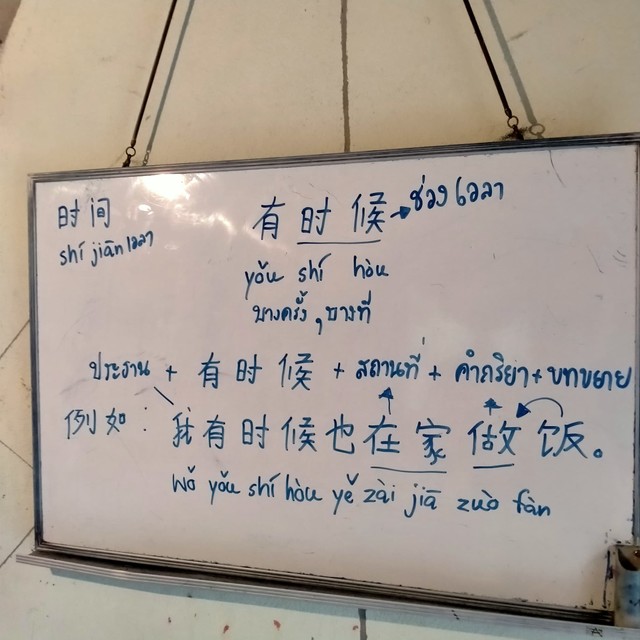 时间
shí jiān เวลา
有时候 → ช่วงเวลา
yǒu shí hòu
บางครั้ง , บางที่
ประธาน + 有时候 + สถานที่ + คำกริยา + บทขยาย
例如 : 我有时候也在家做饭。
wǒ yǒu shí hòu yě zài jiā zuò fàn